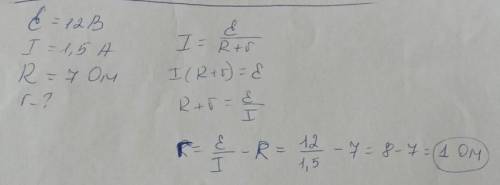 ℰ = 12 В
I = 1,5 А
R = 7 Ом
r - ?
I = ℰ / (R + r)
I (R + r) = ℰ
R + r = ℰ / I
r = ℰ / I - R = 12 / 1,5 - 7 = 8 - 7 = 1 Ом